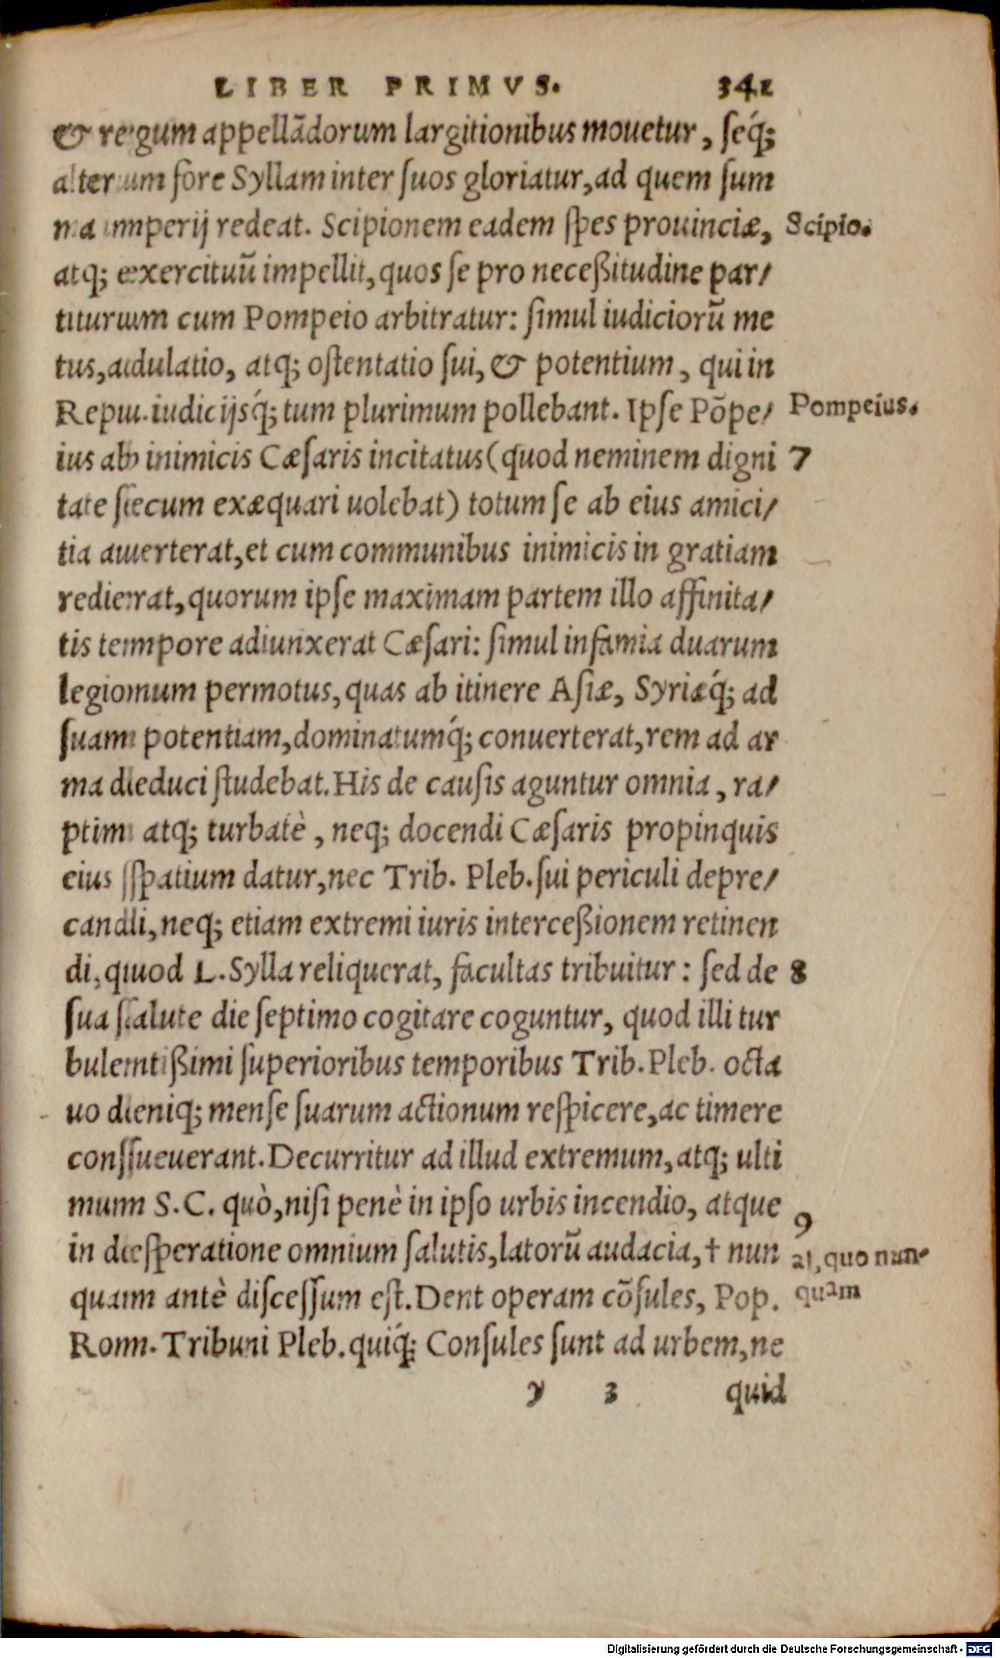 LIBER PRIMVS. 341
& regum appellãdorum largitionibus mouetur, seq́;
alterum fore Syllam inter suos gloriatur, ad quem sum
ma imperij redeat. Scipionem eadem spes prouinciæ,
Scipio.
atq; exercituũ impellit, quos se pro neceßitudine par/
titurum cum Pompeio arbitratur: simul iudiciorũ me
tus, adulatio, atq; ostentatio sui, & potentium, qui in
Repu. iudicijsq́; tum plurimum pollebant. Ipse Põpe/
Pompeius.
ius ab inimicis Cæsaris incitatus (quod neminem digni
7
tate secum exæquari uolebat) totum se ab eius amici/
tia auerterat, et cum communibus inimicis in gratiam
redierat, quorum ipse maximam partem illo affinita/
tis tempore adiunxerat Cæsari: simul infamia duarum
legionum permotus, quas ab itinere Asiæ, Syriæq́; ad
suam potentiam, dominatumq́; conuerterat, rem ad ar
ma deduci studebat. His de causis aguntur omnia, ra/
ptim atq; turbatè, neq; docendi Cæsaris propinquis
eius spatium datur, nec Trib. Pleb. sui periculi depre/
candi, neq; etiam extremi iuris interceßionem retinen
di, quod L. Sylla reliquerat, facultas tribuitur: sed de
8
sua salute die septimo cogitare coguntur, quod illi tur
bulentißimi superioribus temporibus Trib. Pleb. octa
uo deniq; mense suarum actionum respicere, ac timere
consueuerant. Decurritur ad illud extremum, atq; ulti
mum S. C. quò, nisi penè in ipso urbis incendio, atque
9
in desperatione omnium salutis, latorũ audacia, † nun
al, quo nun-
quam antè discessum est. Dent operam cõsules, Pop.
quam
Rom. Tribuni Pleb. quiq́; Consules sunt ad urbem, ne
y 3 quid
Digitalisierung gefördert durch die Deutsche Forschungsgemeinschaft - DFG